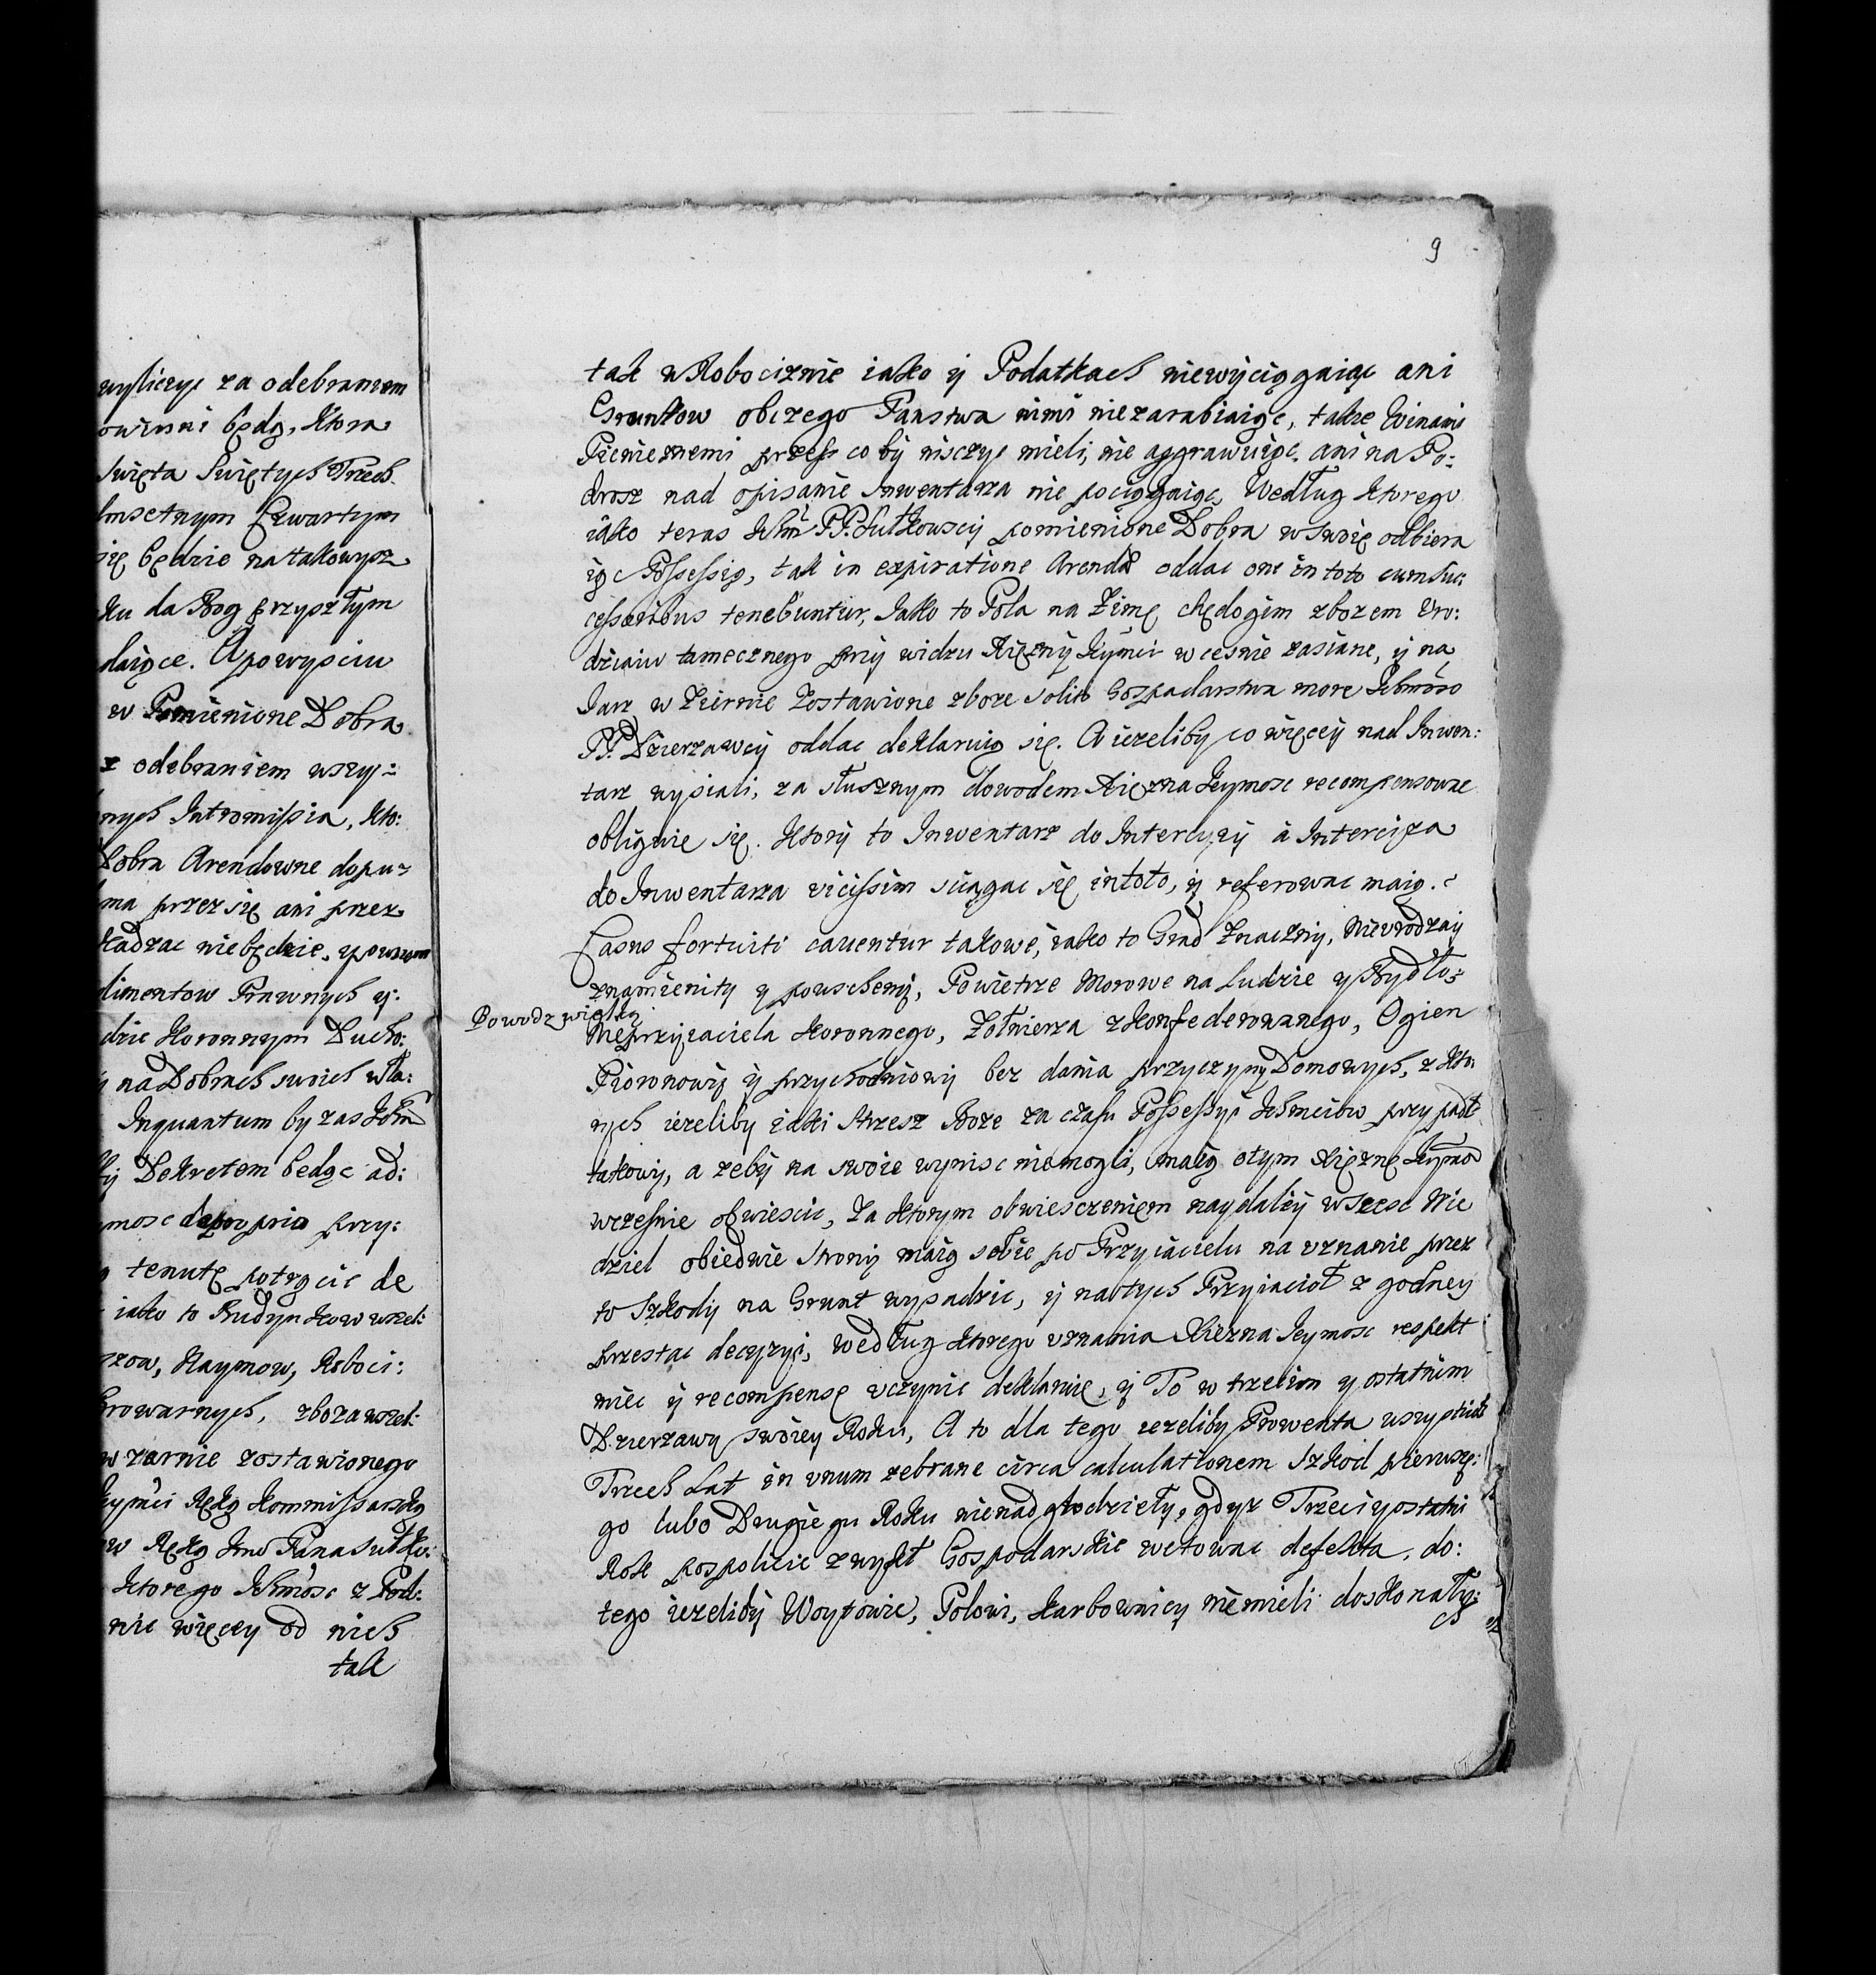 wyliczyc za odebraniem
owinni będą, ktora
swięta Swiętych Trzech
lmsetnym Czwartym
się będzie na takowysz
ku da Bog przyszłym
daiące. A po wysciu
w Pomienione Dobra
z odebraniem wszy:
nych Intromissia, kto:
Dobra Arendowne dopu:
ma przez się ani przez
kadzac niebędzie, y owszem
dimentow Prawnych y:
dzie Koronnym Ducho:
y na Dobrach swoich wła:
Inquantum by zas Ichm
Dekretem bedąc ad:
mosc de proprio przy:
tenutę potrącic de
iako to Budynkow wszel:
szow, Naymow, Roboci:
Browarnych, zboza wszel:
w zernie zostawionego
Jeymci Ręką Kommissarską
w Ręką Jmo Pana Sutko:
ktorego Ichmosc z Pod:
nic więcey od nich
tak
9
tak w Robociznie iako y Podatkach niewyciągaiąc ani
Gruntow obczego Panstwa nimi niezarabiaiąc, takze Winami
Pienieznemi przess co by nisczyc mieli, nie aggrawuiąc, ani na Po:
drosz nad opisanie Inwentarza nie pociągaiąc, Według ktorego
iako teras Ichm PP. Sutkowscy pomienione Dobra w swoię odbiera
ią Possessią, tak in expiratione Arendæ oddac one in toto cum Suc:
cessoribus tenebuntur, Jako to Pola na Zimę chędogim zbozem Vro:
dzaiu tamecznego przy widzu Xięzny Jeymci wcesnie zasiane, y na
Jarz w Ziernie Zostawione zboze solito Gospadarstwa more Ichmosc
PP. Dzierzawcy oddac deklaruią się. A iezeliby co więcey nad Inwen:
tarz wysiali, za słusznym dowodem Xięzna Jeymosc recompensowac
obliguie się. Ktory to Inwentarz do Intercyzy à Interciza
do Inwentarza vicissim sciągac się intoto, y referowac maią.
Casus fortuiti cauentur takowe, iako to Grad Znaczny, Nievrodzay
znamienity y powscheny, Powietrze Morowe na Ludzie y Bydło:
Powodz wielką
Nieprzyiaciela Koronnego, Zołnierza zkonfederowanego, Ogien
Pioronowy y przychodniowy bez dania przyczyny Domowych, z kto:
rych iezeliby iaki strzesz Boze za czasu Possessyi Ichmciow przypadł
takowy, a zeby na swoie wynisc niemogli, maią otym Xięznę Jeymo
wczesnie obwiescic, Za ktorym obwiesczeniem naydaley w Szesc Nie
dziel obiedwie strony maią sobie po Przyiacielu na vznanie przez
to Szkody na Grunt wysadzic, y na tych Przyiacioł z godney
przestac decyzyi, według ktorego vznania Xiezna Jeymosc respekt
miec y recompensę vczynic deklaruie, y To w trzecim y ostatnim
Dzierzawy swoiey Roku, A to dla tego iezeliby Prowenta wszystkich
Trzech Lat in vnum zebrane circa calculationem Szkod pierwsze:
go lubo Drugiego Roku nienadgłodziеły, gdyz Trzeci y ostatni
Rok pospolicie zwykł Gospodarskie wetowac defekta, do:
tego iezeliby Woytowie, Polowi, Karbownicy niemieli doskonały:
ch